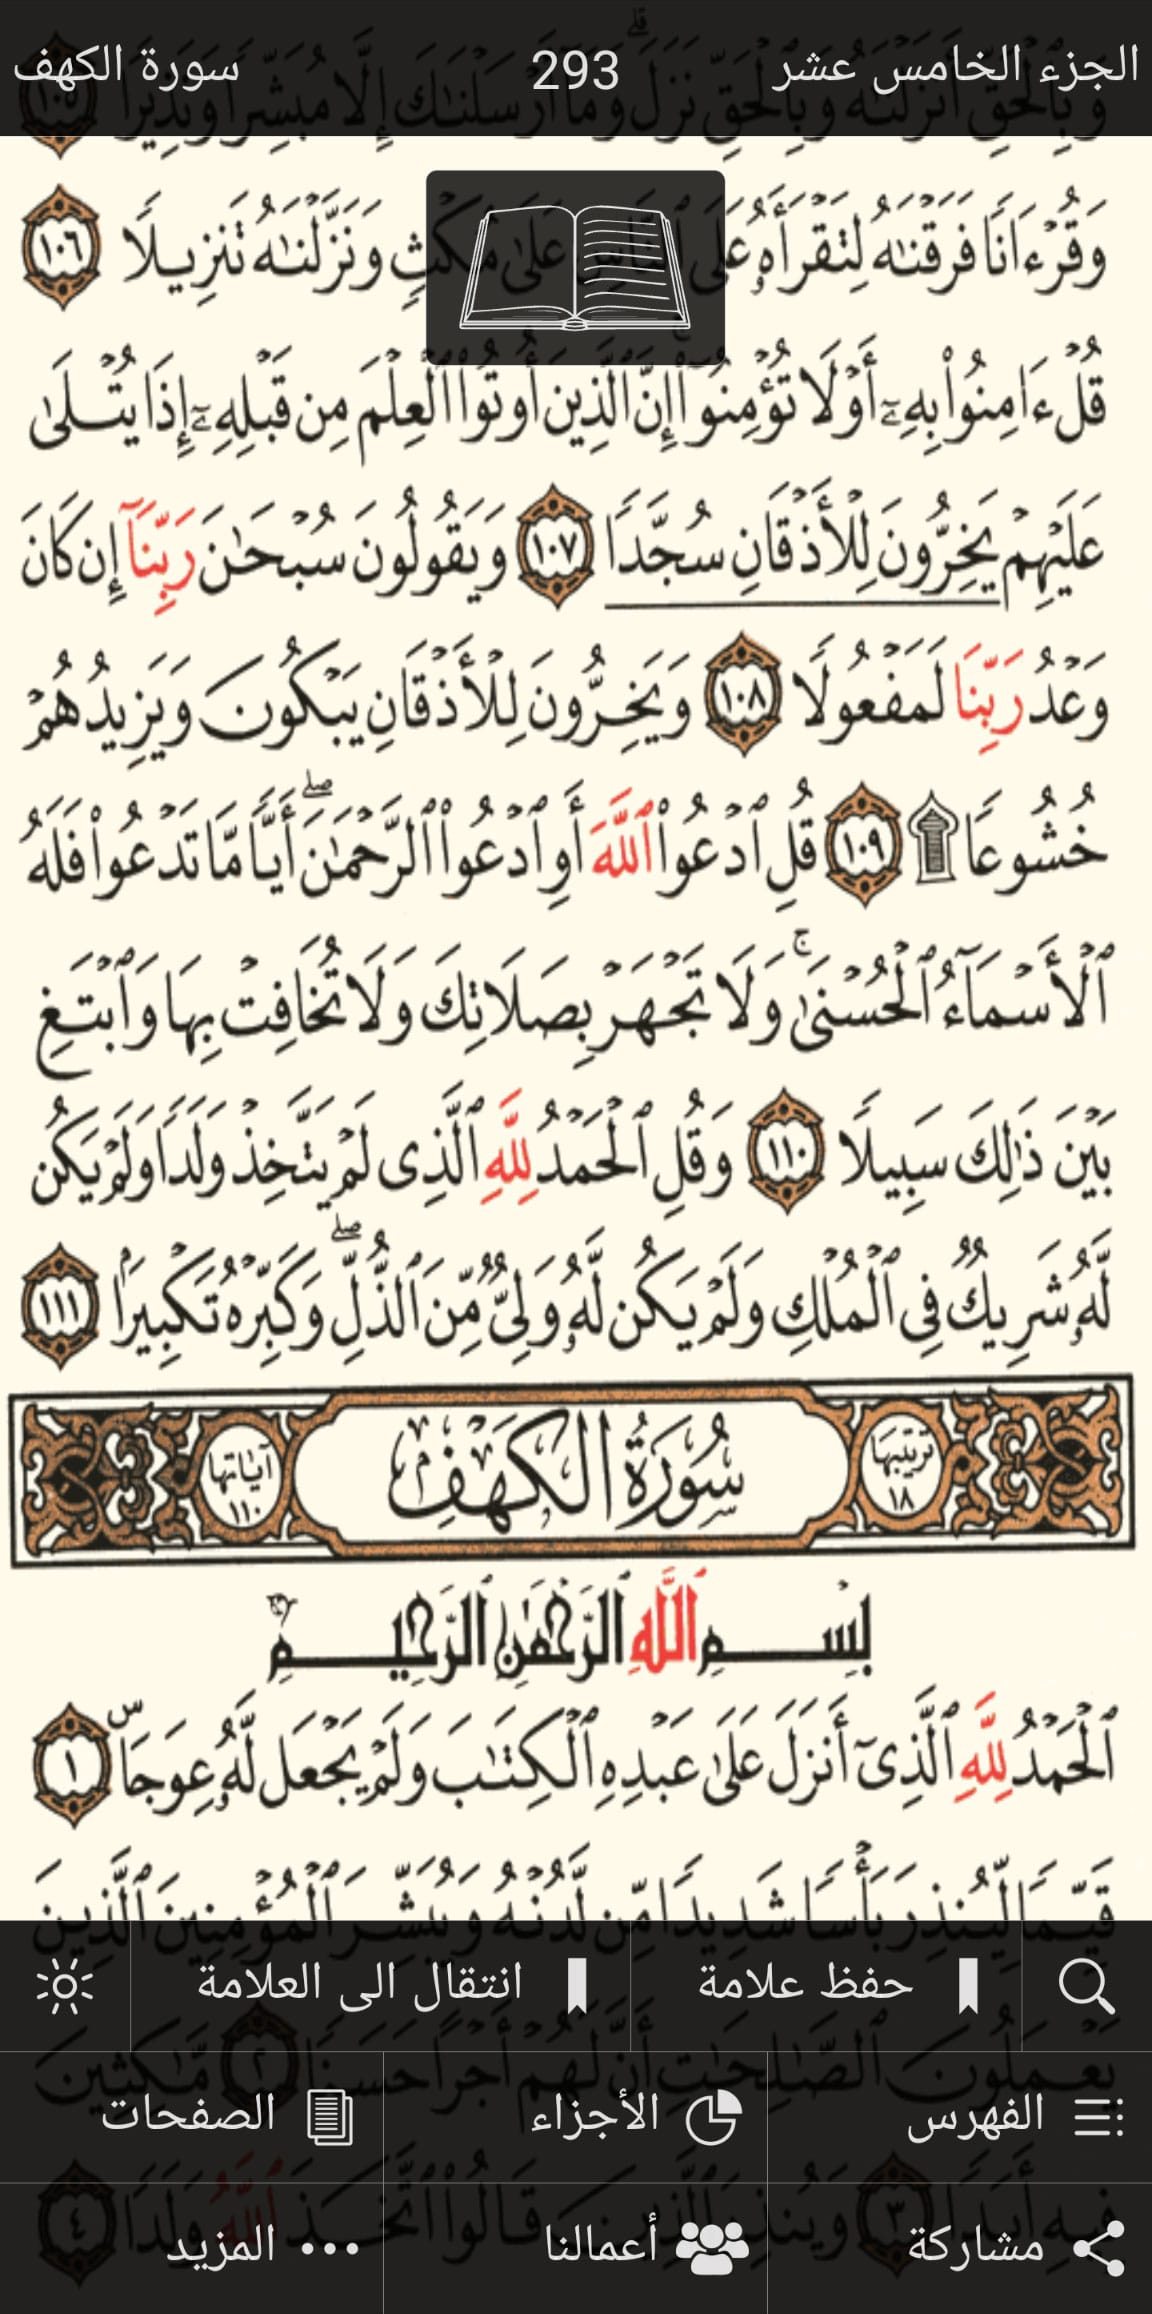 الجزء الخامس عشر 293 سورة الكهف
وَبِٱلْحَقِّ أَنزَلْنَٰهُ وَبِٱلْحَقِّ نَزَلَ ۗ وَمَآ أَرْسَلْنَٰكَ إِلَّا مُبَشِّرًا وَنَذِيرًا ١٠٥
وَقُرْءَانًا فَرَقْنَٰهُ لِتَقْرَأَهُۥ عَلَى ٱلنَّاسِ عَلَىٰ مُكْثٍ وَنَزَّلْنَٰهُ تَنزِيلًا ١٠٦
قُلْ ءَامِنُوا۟ بِهِۦٓ أَوْ لَا تُؤْمِنُوٓا۟ ۚ إِنَّ ٱلَّذِينَ أُوتُوا۟ ٱلْعِلْمَ مِن قَبْلِهِۦٓ إِذَا يُتْلَىٰ
عَلَيْهِمْ يَخِرُّونَ لِلْأَذْقَانِ سُجَّدًا ١٠٧ وَيَقُولُونَ سُبْحَٰنَ رَبِّنَآ إِن كَانَ
وَعْدُ رَبِّنَا لَمَفْعُولًا ١٠٨ وَيَخِرُّونَ لِلْأَذْقَانِ يَبْكُونَ وَيَزِيدُهُمْ
خُشُوعًا ۩ ١٠٩ قُلِ ٱدْعُوا۟ ٱللَّهَ أَوِ ٱدْعُوا۟ ٱلرَّحْمَٰنَ ۖ أَيًّا مَّا تَدْعُوا۟ فَلَهُ
ٱلْأَسْمَآءُ ٱلْحُسْنَىٰ ۚ وَلَا تَجْهَرْ بِصَلَاتِكَ وَلَا تُخَافِتْ بِهَا وَٱبْتَغِ
بَيْنَ ذَٰلِكَ سَبِيلًا ١١٠ وَقُلِ ٱلْحَمْدُ لِلَّهِ ٱلَّذِى لَمْ يَتَّخِذْ وَلَدًا وَلَمْ يَكُن
لَّهُۥ شَرِيكٌ فِى ٱلْمُلْكِ وَلَمْ يَكُن لَّهُۥ وَلِىٌّ مِّنَ ٱلذُّلِّ ۖ وَكَبِّرْهُ تَكْبِيرًۢا ١١١
ترتيبها ١٨ سُورَةُ الكَهْفِ آياتها ١١٠
بِسْمِ ٱللَّهِ ٱلرَّحْمَٰنِ ٱلرَّحِيمِ
ٱلْحَمْدُ لِلَّهِ ٱلَّذِىٓ أَنزَلَ عَلَىٰ عَبْدِهِ ٱلْكِتَٰبَ وَلَمْ يَجْعَل لَّهُۥ عِوَجَا ۜ ١
قَيِّمًا لِّيُنذِرَ بَأْسًا شَدِيدًا مِّن لَّدُنْهُ وَيُبَشِّرَ ٱلْمُؤْمِنِينَ ٱلَّذِينَ
حفظ علامة انتقال الى العلامة
يَعْمَلُونَ ٱلصَّٰلِحَٰتِ أَنَّ لَهُمْ أَجْرًا حَسَنًا ٢ مَّٰكِثِينَ
الفهرس الأجزاء الصفحات
فِيهِ أَبَدًا ٣ وَيُنذِرَ ٱلَّذِينَ قَالُوا۟ ٱتَّخَذَ ٱللَّهُ وَلَدًا ٤
مشاركة أعمالنا المزيد